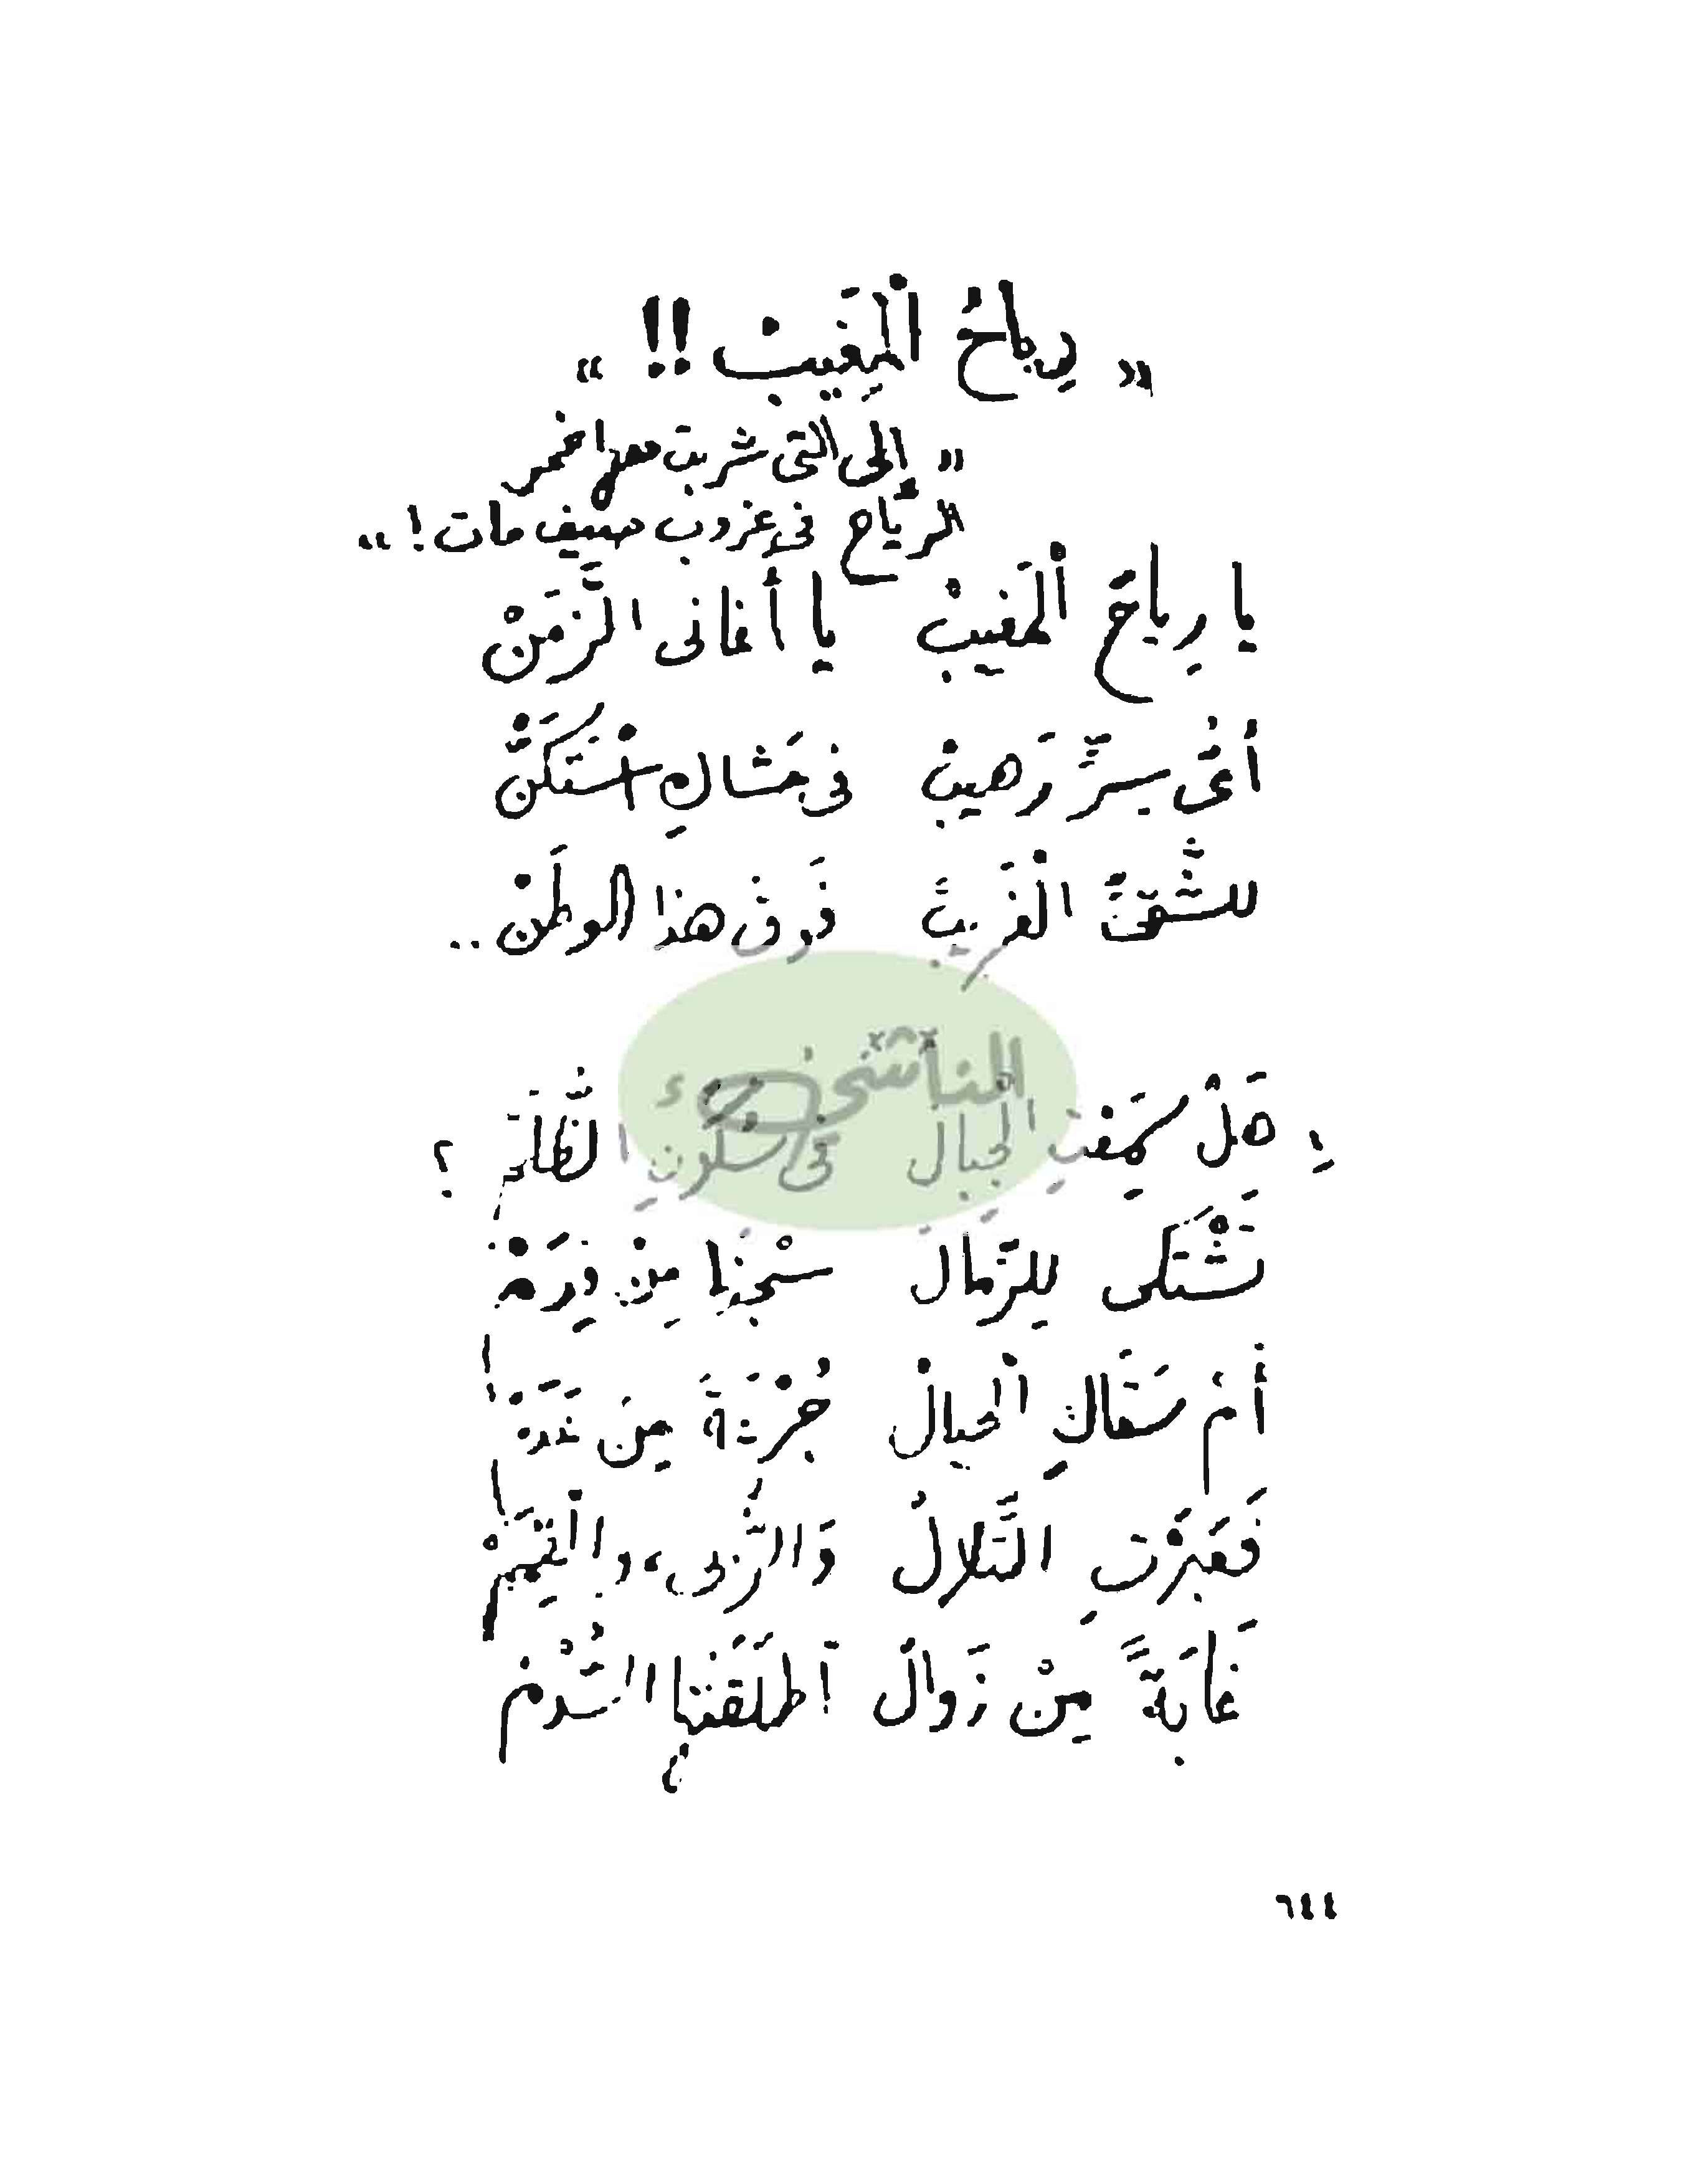 « رِيَاحُ الْمَغِيبْ !! »
« إلى التى شربت معها خمر
الرياح فى غروب صيف مات ! »
يا رِياحَ الْمَغيبْ يا أَغانى الزَّمَنْ
أىُّ سِرٍّ رَهيبْ فى حَشاكِ اسْتَكَنّْ
للشَّقىِّ الْغَريبْ فَوقَ هذا الوطَنْ ..
هَلْ سَمِعْتِ الجبال فى سُكونِ الظُّلَمْ ؟
تَشْتَكى لِلرِّمال سِجْنَها مِنْ
أمْ سَقَاكِ الْجبالْ جُرْعَةً مِنْ
فَعَبَرْتِ التِّلالْ وَالرُّبى، والْقِمَمْ
غَابَةً مِنْ زَوالْ أطلَقَتْها السُّدُمْ
٦٤٤